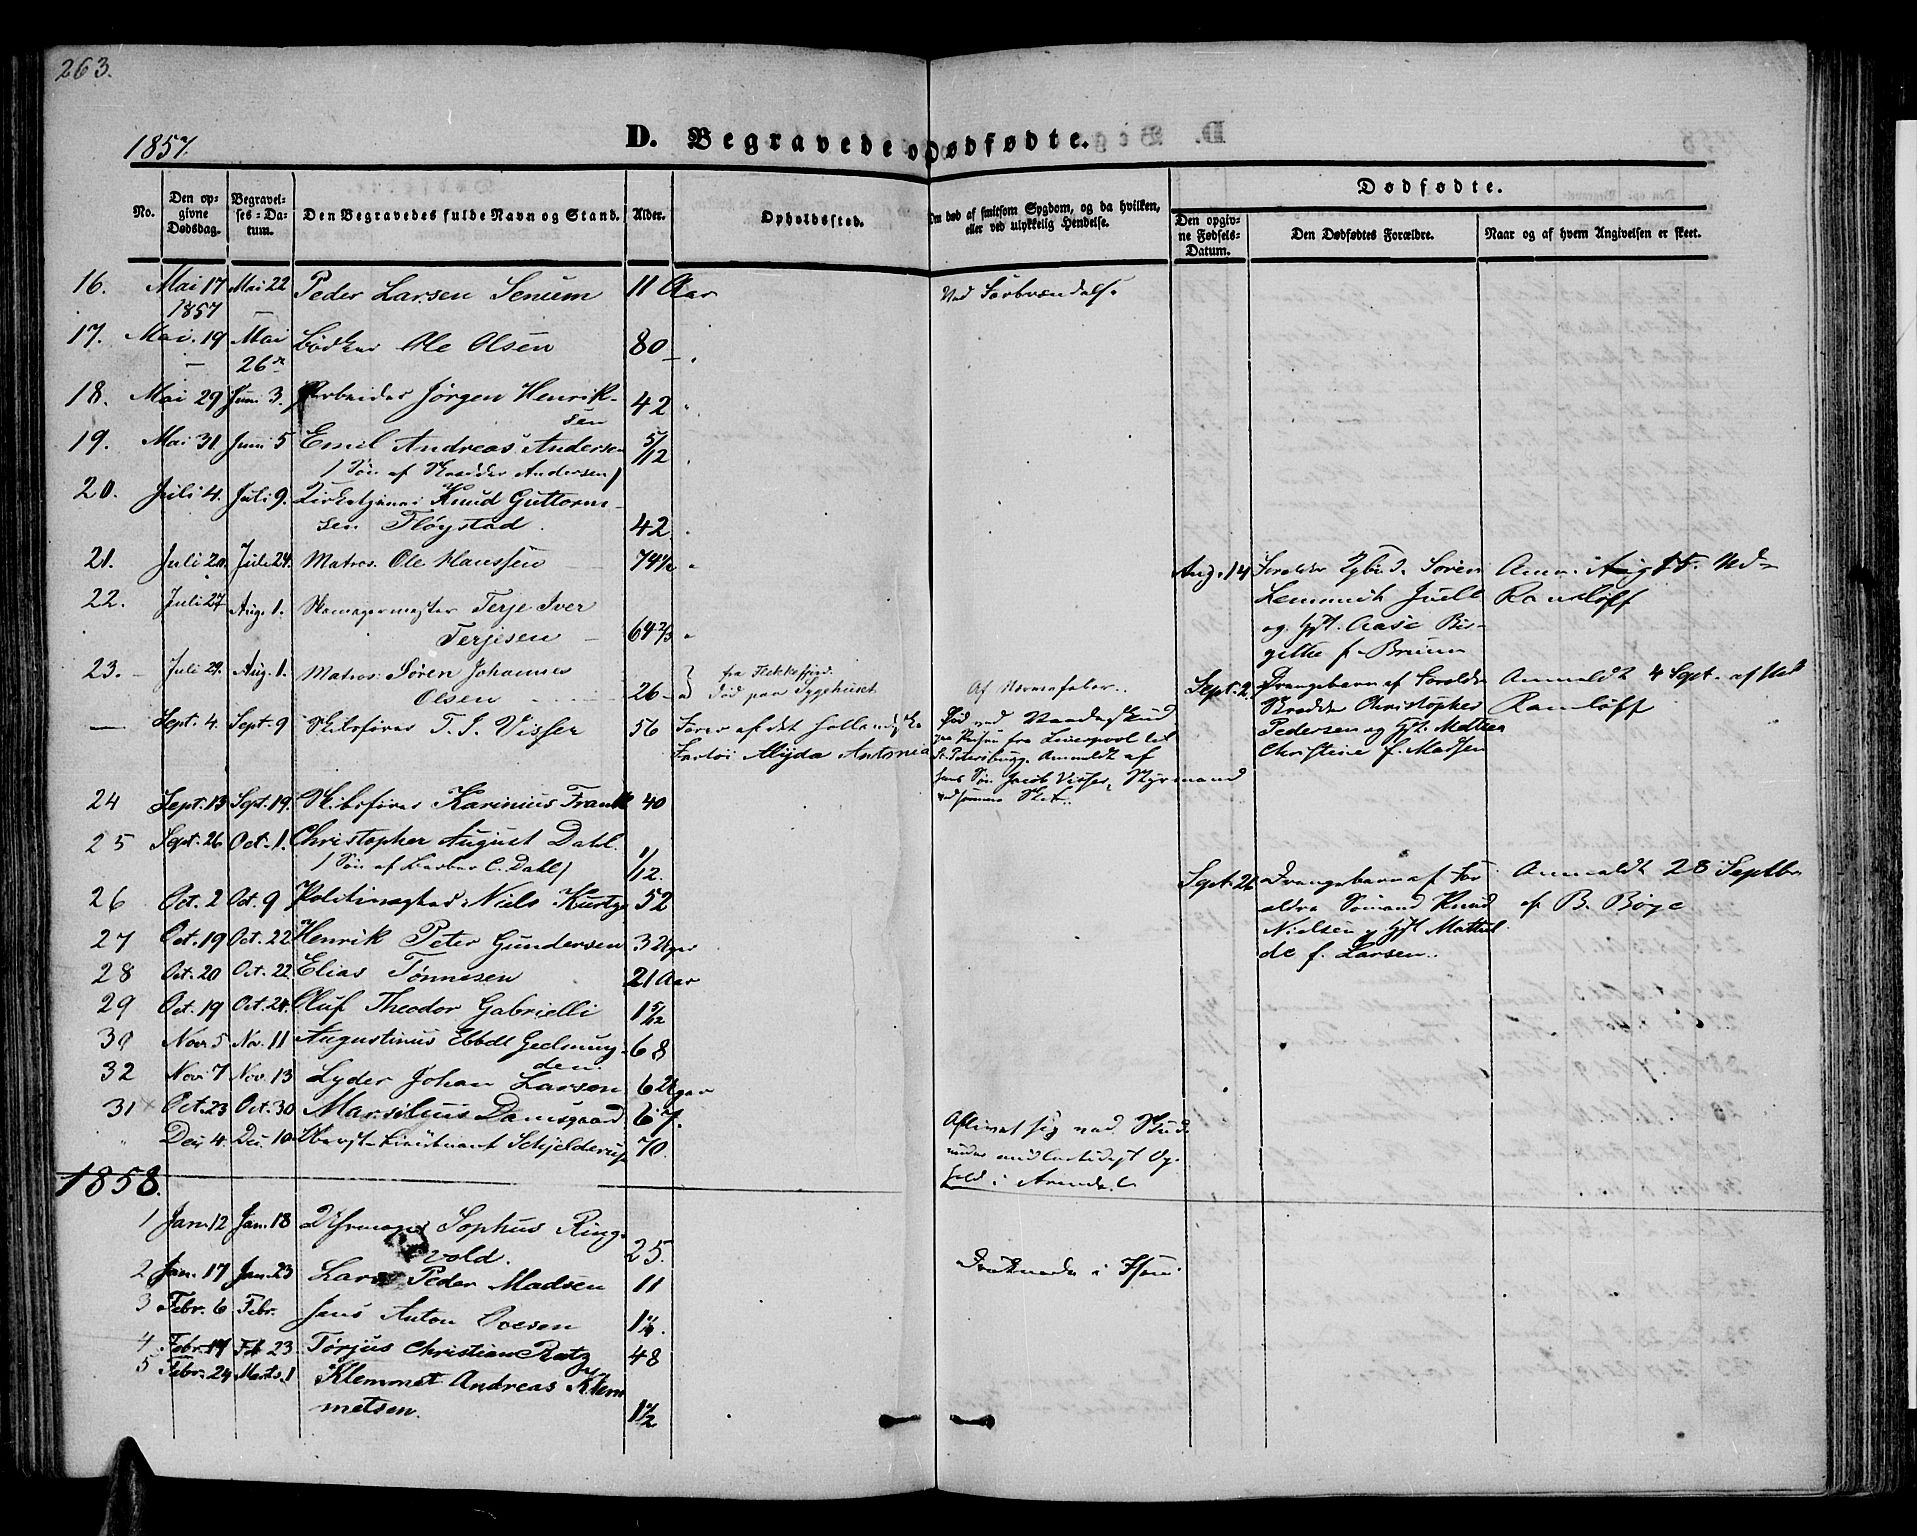 263.
1857.
D. Begravede og Dødfødte.
No.
Den opgivne Dødsdag.
Begravelses-Datum.
Den Begravedes fulde Navn og Stand.
Alder.
Opholdssted.
Om død af smitsom Sygdom, og da hvilken, eller ved ulykkelig Hendelse.
Dødfødte.
Den opgivne Fødsels-Datum.
Den Dødfødtes Forældre.
Naar og af hvem Angivelsen er skeet.
16. Mai 17 1857 Mai 22 Peder Larsen 11 Aar Ved
17. Mai 19 Mai 26 Bødker Ole Olsen 80
18. Mai 29 Juni 3. Arbeider Jørgen Henriksen 42
19. Mai 31 Juni 5 Emil Andreas Andersen 5/12
/ Søn af Andersen /
20. Juli 4. Juli 9. Knud Guttormsen Fløystad 42
21. Juli 20 Juli 24. Matros Ole Hanssen 74½
22. Juli 27 Aug. 1. Skomagermester Terje Iver Terjesen 64 2/3
23. Juli 29. Aug. 1. Matros Søren Johannes Olsen 26 fra Flekkefjord. død paa Sygehuset Af Nervefeber.
Sept. 4. Sept. 9 Skibsfører T. J. Visser 56 Fører af det hollandske Fartøi Alyda Antonia
Død ved Vaadeskud
paa Reisen fra Liverpool til
St. Petersburg. Anmeldt af
hans Søn Jacob Visser, Styrmand
ved samme Skib.
24 Sept. 13 Sept. 19. Skibsfører Karinius Frank 40
25 Sept. 26 Oct. 1. Christopher August Dahl. 1/12.
/ Søn af C. Dahl /
26 Oct. 2 Oct. 9 Niels 52
27 Oct. 19 Oct. 22 Henrik Peter Gundersen 3 Uger
28 Oct. 20 Oct. 22 Elias Tønnesen 21 Aar
29 Oct. 19 Oct. 24. Oluf Theodor Gabrielli 1 5/12
30 Nov. 5 Nov. 11 Augustinus Ebbel 68
32 Nov. 7 Nov. 13 Lyder Johan Larsen 6 Uger
31 Oct. 23 Oct. 30 Marsilius Damsgaard
Dec. 4. Dec. 10 Oberst-Lieutenant Schjelderup 70.
Aflivet sig ved Skud
under midlertidigt Op-
hold i Arendal
1858.
1 Jan. 12 Jan. 18 Sophus Ringvold. 25.
2 Jan. 17 Jan. 23 Lars Peder Madsen 11 Druknede i
3 Febr. 6 Febr. Jens Anton
4 Febr. Feb. 23. Tørjus Christian Ratz 48
5 Febr. 24 Marts 1 Klemmet Andreas Klemmetsen. 1½
Aug. 14 Forældre Søren
Lemmich Juell
og Hst. Aase Bir-
gitte f. Bruun
Anm. Aug. 15. Md.
Ramløff
Sept. 2. Drengebarn af Forældre
Christopher
Pedersen og Hst. Mathea
Christine f. Madsen
Anmeldt 4 Sept. af Md
Ramløff
Sept. 26 Drengebarn af For-
ældre Sømand Knud
Nielsen og Hst. Mathil-
de f. Larsen.
Anmeldt 28 Septbr.
af B. Bøye